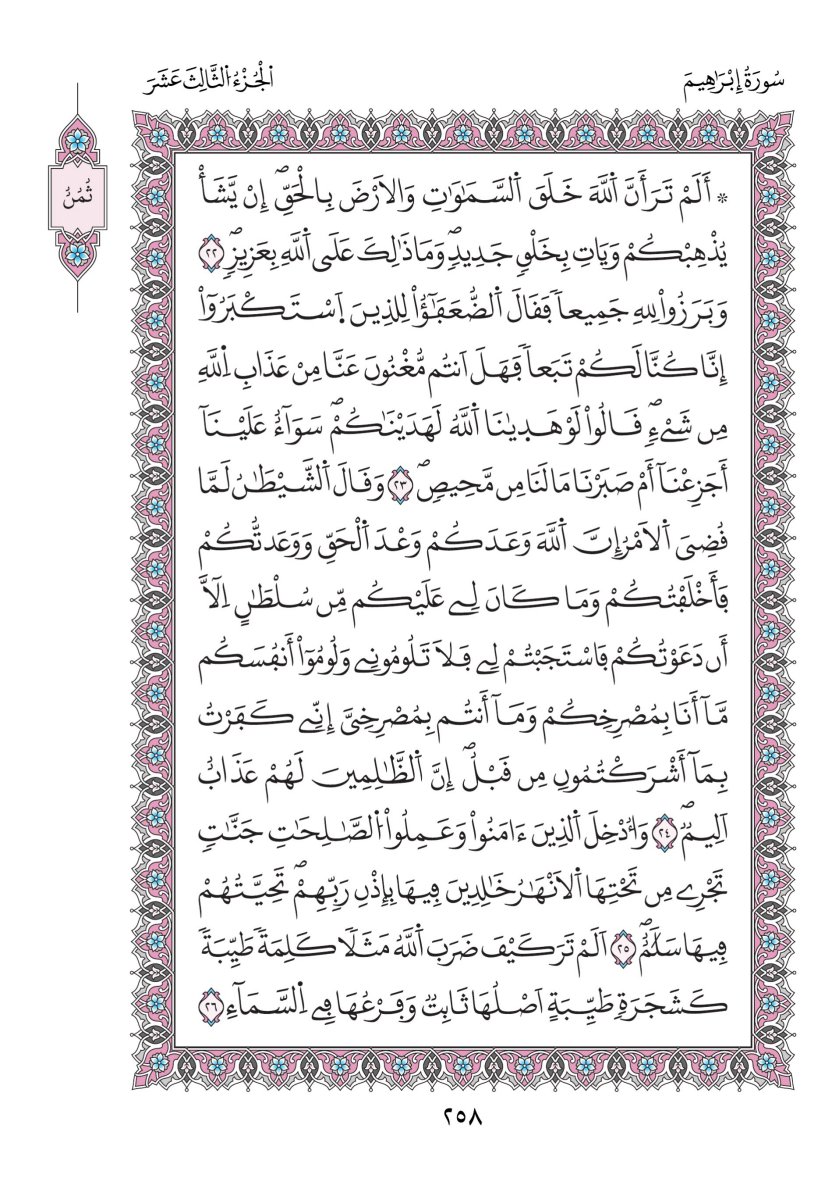 سُورَةُ إِبْرَاهِيمَ
اَلْجُزْءُ اَلثَّالِثَ عَشَرَ
ثُمُنُ
* أَلَمْ تَرَ أَنَّ اَ۬للَّهَ خَلَقَ اَ۬لسَّمَٰوَٰتِ وَالَارْضَ بِالْحَقِّۖ إِنْ يَّشَأْ
يُذْهِبْكُمْ وَيَاتِ بِخَلْقٖ جَدِيدٖۖ وَمَا ذَٰلِكَ عَلَي اَ۬للَّهِ بِعَزِيزٖۖ ٢٢
وَبَرَزُواْ لِلهِ جَمِيعاٗ فَقَالَ اَ۬لضُّعَفَٰٓؤُاْ لِلذِينَ اَ۪سْتَكْبَرُوٓاْ
إِنَّا كُنَّا لَكُمْ تَبَعاٗ فَهَلَ اَنتُم مُّغْنُونَ عَنَّا مِنْ عَذَابِ اِ۬للَّهِ
مِن شَےْءٖۖ قَالُواْ لَوْ هَدٜيٰنَا اَ۬للَّهُ لَهَدَيْنَٰكُمْۖ سَوَآءٌ عَلَيْنَآ
أَجَزِعْنَآ أَمْ صَبَرْنَا مَا لَنَا مِن مَّحِيصٖۖ ٢٣ وَقَالَ اَ۬لشَّيْطَٰنُ لَمَّا
قُضِيَ اَ۬لَامْرُ إِنَّ اَ۬للَّهَ وَعَدَكُمْ وَعْدَ اَ۬لْحَقِّ وَوَعَدتُّكُمْ
فَأَخْلَفْتُكُمْ وَمَا كَانَ لِے عَلَيْكُم مِّن سُلْطَٰنٍ اِلَّآ
أَن دَعَوْتُكُمْ فَاسْتَجَبْتُمْ لِے فَلَا تَلُومُونِے وَلُومُوٓاْ أَنفُسَكُم
مَّآ أَنَا بِمُصْرِخِكُمْ وَمَآ أَنتُم بِمُصْرِخِيَّ إِنِّے كَفَرْتُ
بِمَآ أَشْرَكْتُمُونِ مِن قَبْلُۖ إِنَّ اَ۬لظَّٰلِمِينَ لَهُمْ عَذَابٌ
اَلِيمٞۖ ٢٤ وَأُدْخِلَ اَ۬لذِينَ ءَامَنُواْ وَعَمِلُواْ اُ۬لصَّٰلِحَٰتِ جَنَّٰتٖ
تَجْرِے مِن تَحْتِهَا اَ۬لَانْهَٰرُ خَٰلِدِينَ فِيهَا بِإِذْنِ رَبِّهِمْۖ تَحِيَّتُهُمْ
فِيهَا سَلَٰمٌۖ ٢٥ اَلَمْ تَرَ كَيْفَ ضَرَبَ اَ۬للَّهُ مَثَلاٗ كَلِمَةٗ طَيِّبَةٗ
كَشَجَرَةٖ طَيِّبَةٍ اَصْلُهَا ثَابِتٞ وَفَرْعُهَا فِے اِ۬لسَّمَآءِ ٢٦
٢٥٨